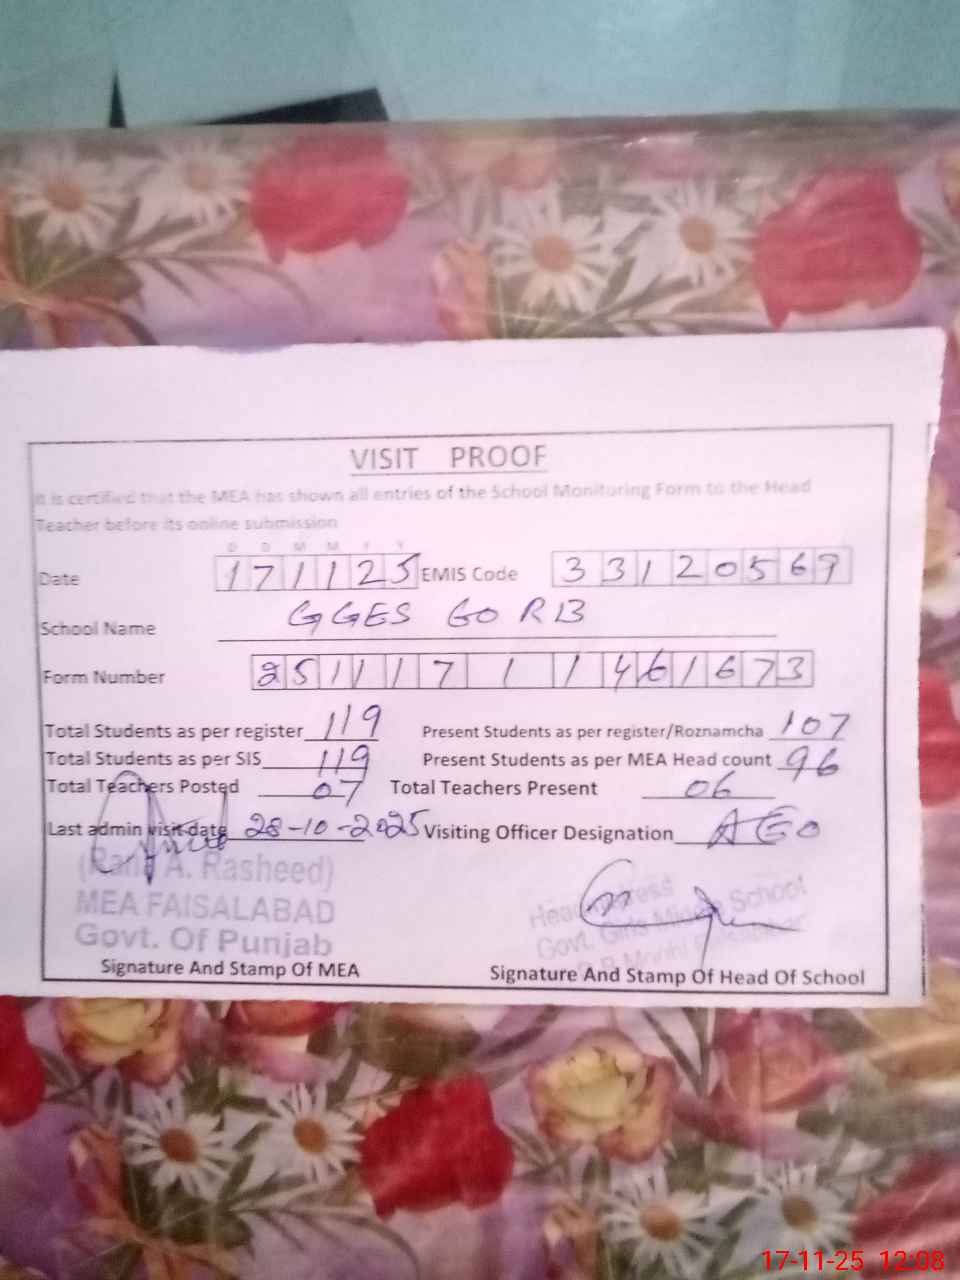 VISIT PROOF
It is certified that the MEA has shown all entries of the School Monitoring Form to the Head
Teacher before its online submission
D D M M Y Y
Date 171125 EMIS Code 33120567
School Name GGES 60 RB
Form Number 2511171 1461673
Total Students as per register 119 Present Students as per register/Roznamcha 107
Total Students as per SIS 119 Present Students as per MEA Head count 96
Total Teachers Posted 07 Total Teachers Present 06
Last admin visit date 28-10-2025 Visiting Officer Designation AEO
(Rana A. Rasheed)
MEA FAISALABAD
Govt. Of Punjab
Headmistress
Govt. Girls School
Signature And Stamp Of MEA Signature And Stamp Of Head Of School
17-11-25 12:08